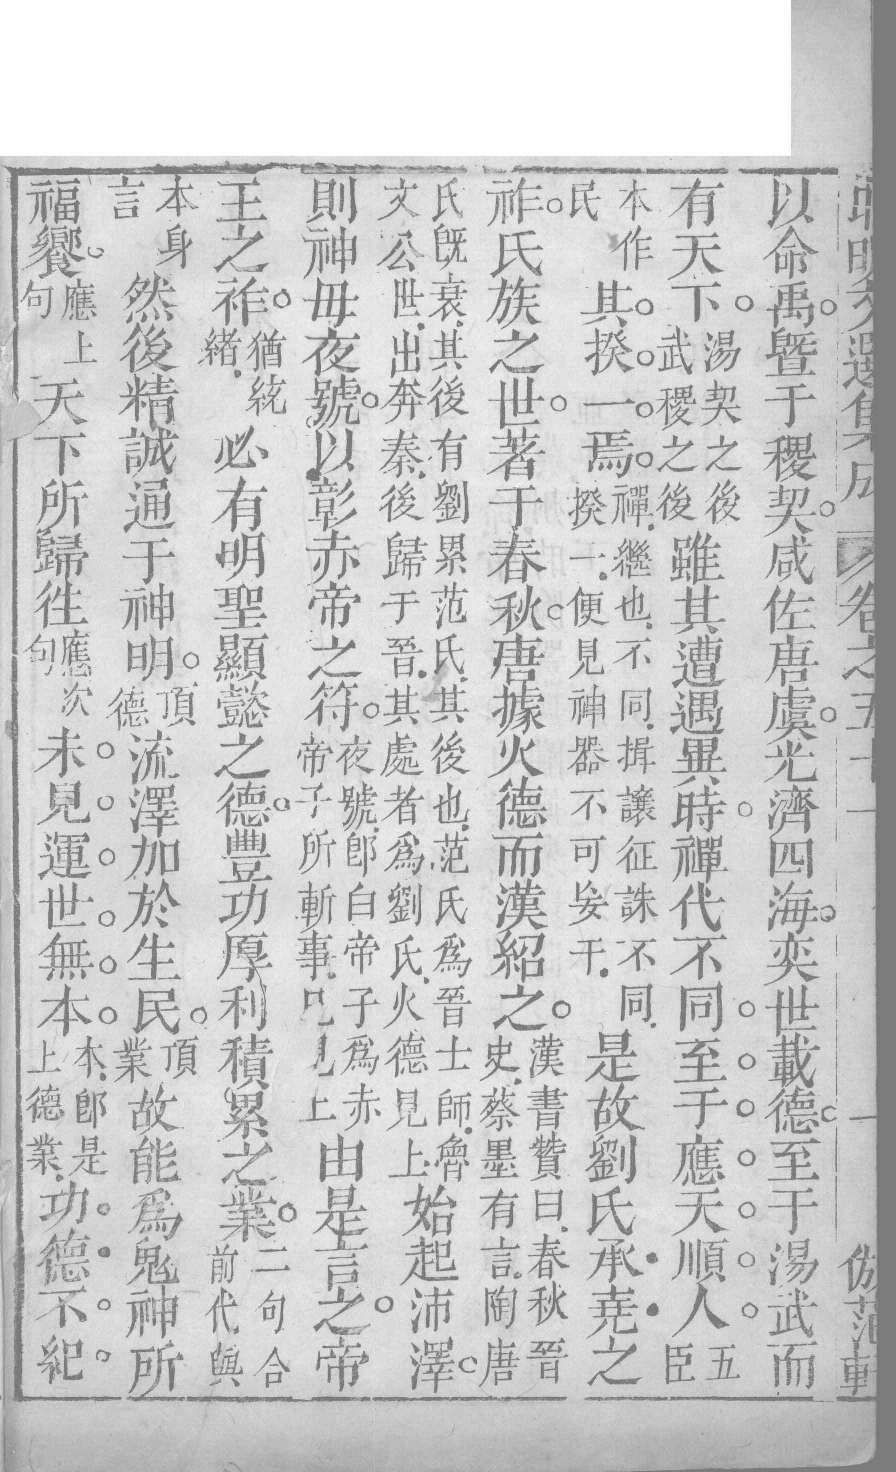 昭明文選集成 卷之五十一 一 倣范軒
以命禹。曁于稷契。咸佐唐虞。光濟四海。奕世載德。至于湯武而
有天下。湯契之後武稷之後雖其遭遇異時。禪代不同。至于應天順人。五臣
本作民其揆一焉。禪。繼也。不同。揖讓征誅不同。揆一。便見神器不可妄干。是故劉氏承堯之
祚。氏族之世。著于春秋。唐據火德而漢紹之。漢書贊曰。春秋晉史。蔡墨有言。陶唐
氏旣衰。其後有劉累。范氏。其後也。范氏爲晉士師。魯文公世。出奔秦。後歸于晉。其處者爲劉氏。火德見上。始起沛澤。
則神母夜號。以彰赤帝之符。夜號。卽白帝子爲赤帝子所斬事。已見上由是言之。帝
王之祚。猶統緒。必有明聖顯懿之德。豐功厚利積累之業。二句合前代與
本身言然後精誠通于神明。頂德流澤加於生民。頂業故能爲鬼神所
福饗。應上句天下所歸往應次句未見運世無本。本。卽是上德業。功德不紀。